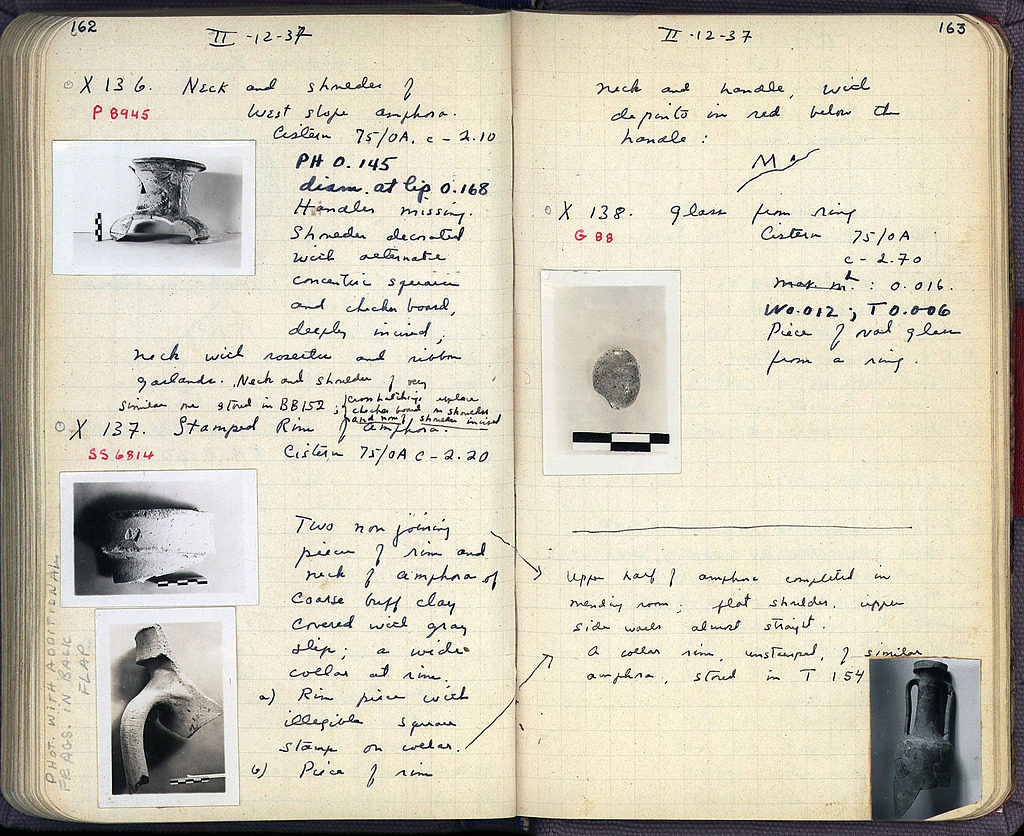 162
II -12-37
X 136. Neck and shoulder of
P 8945
West slope amphora.
Cistern 75/OA, c - 2.10
PH 0.145
diam. at lip 0.168
Handles missing.
Shoulder decorated
with alternate
concentric squares
and checker board,
deeply incised;
neck with rosettes and ribbon
garlands. Neck and shoulder of very
similar one stored in BB152; cross hatching replace
checker board on shoulder
and none of shoulder incised
X 137. Stamped Rim of amphora.
SS 6814
Cistern 75/OA c - 2.20
Two non joining
pieces of rim and
neck of amphora of
coarse buff clay
covered with gray
slip; a wide
collar at rim.
a) Rim piece with
illegible square
stamp on collar.
b) Piece of rim
PHOT. WITH ADDITIONAL
FRAGS. IN BACK
FLAP
163
II -12-37
neck and handle, with
dipinto in red below the
handle:
X 138. Glass from ring
G 88
Cistern 75/OA
c - 2.70
max. : 0.016.
W 0.012; T 0.006
Piece of oval glass
from a ring.
Upper half of amphora completed in
mending room; flat shoulder, upper
side walls almost straight.
A collar rim, unstamped, of similar
amphora, stored in T 154